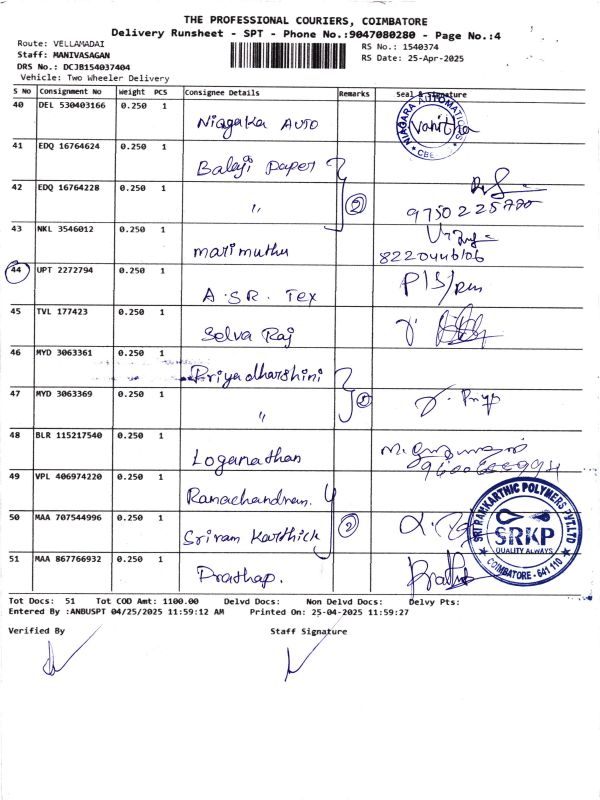 THE PROFESSIONAL COURIERS, COIMBATORE
Delivery Runsheet - SPT - Phone No.:9047080280 - Page No.:4
Route: VELLAMADAI
RS No.: 1540374
Staff: MANIVASAGAN
RS Date: 25-Apr-2025
DRS No.: DCJB154037404
Vehicle: Two Wheeler Delivery
S No Consignment No Weight PCS Consignee Details Remarks Seal & Signature
40 DEL 530403166 0.250 1 Niagaka Auto Vanitha
NIAGARA AUTOMATIONS * CBE *
41 EDQ 16764624 0.250 1 Balaji Paper
42 EDQ 16764228 0.250 1 " (2)
43 NKL 3546012 0.250 1 marimuthu
44 UPT 2272794 0.250 1 A.S.R. Tex
45 TVL 177423 0.250 1 Selva Raj
46 MYD 3063361 0.250 1 Priyadharshini
47 MYD 3063369 0.250 1 " Priya
48 BLR 115217540 0.250 1 Loganathan
49 VPL 406974220 0.250 1 Ramachandran.
50 MAA 707544996 0.250 1 Sriram Karthick (2)
SRI RAMKARTHIC POLYMERS PVT.LTD
SRKP
QUALITY ALWAYS
COIMBATORE - 641 110
51 MAA 867766932 0.250 1 Prathap.
Tot Docs: 51 Tot COD Amt: 1100.00 Delvd Docs: Non Delvd Docs: Delvy Pts:
Entered By :ANBUSPT 04/25/2025 11:59:12 AM Printed On: 25-04-2025 11:59:27
Verified By Staff Signature